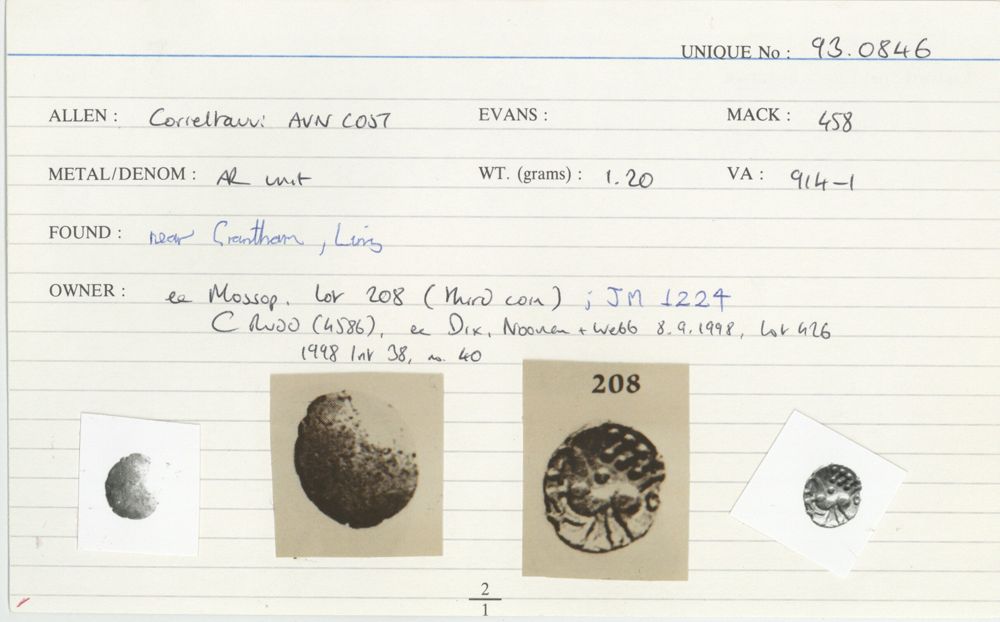 UNIQUE No : 93.0846
ALLEN : Corieltauvi AVN COST EVANS : MACK : 458
METAL/DENOM : AR unit WT. (grams) : 1.20 VA : 914-1
FOUND : near Grantham, Lincs
OWNER : ex Mossop. Lot 208 (third coin) ; JM 1224
C Rudd (4586), ex Dix, Noonan + Webb 8.9.1998, Lot 426
1998 Int 38, no. 40
208
2
1